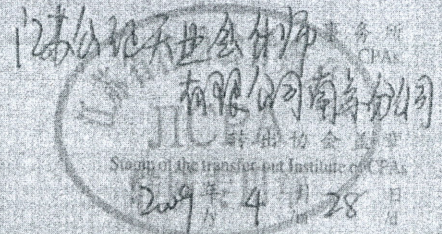 江苏公证天业会计师事务所
CPAs
有限公司南京分公司
JICPA
转出协会盖章
Stamp of the transfer-out Institute of CPAs
2009年4月28日
/y /m /d